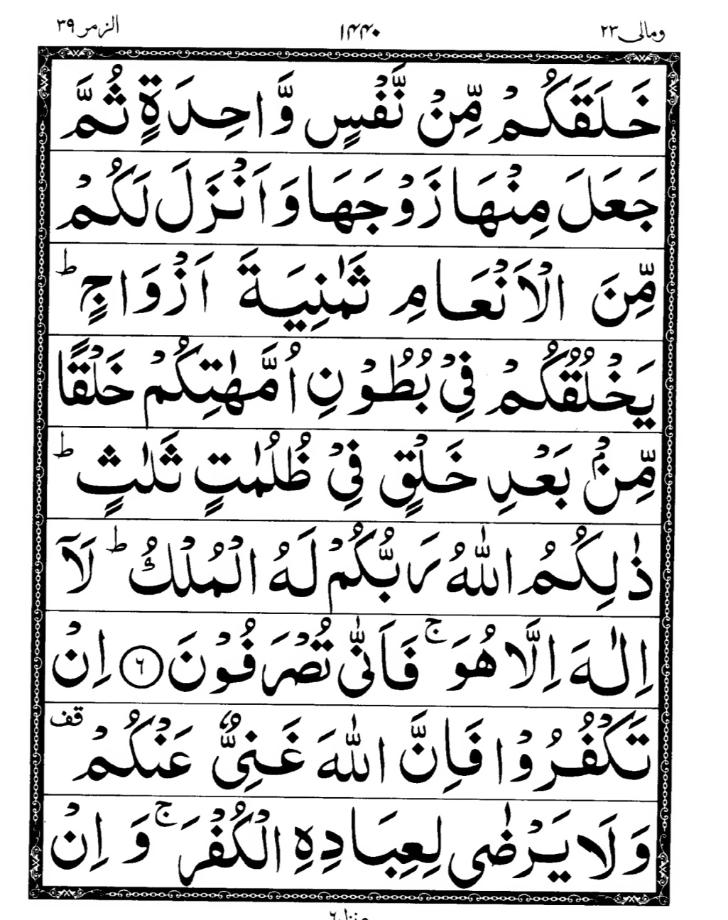 ومالی ۲۳ ۱۴۴۰ الزمر ۳۹
خَلَقَكُمْ مِّنْ نَّفْسٍ وَّاحِدَةٍ ثُمَّ
جَعَلَ مِنْهَا زَوْجَهَا وَاَنْزَلَ لَكُمْ
مِّنَ الْاَنْعَامِ ثَمٰنِيَةَ اَزْوَاجٍ ؕ
يَخْلُقُكُمْ فِيْ بُطُوْنِ اُمَّهٰتِكُمْ خَلْقًا
مِّنْۢ بَعْدِ خَلْقٍ فِيْ ظُلُمٰتٍ ثَلٰثٍ ؕ
ذٰلِكُمُ اللّٰهُ رَبُّكُمْ لَهُ الْمُلْكُ ؕ لَاۤ
اِلٰهَ اِلَّا هُوَ ۚ فَاَنّٰى تُصْرَفُوْنَ ﴿۶﴾ اِنْ
تَكْفُرُوْا فَاِنَّ اللّٰهَ غَنِيٌّ عَنْكُمْ قف
وَلَا يَرْضٰى لِعِبَادِهِ الْكُفْرَ ۚ وَ اِنْ
منزل ۶